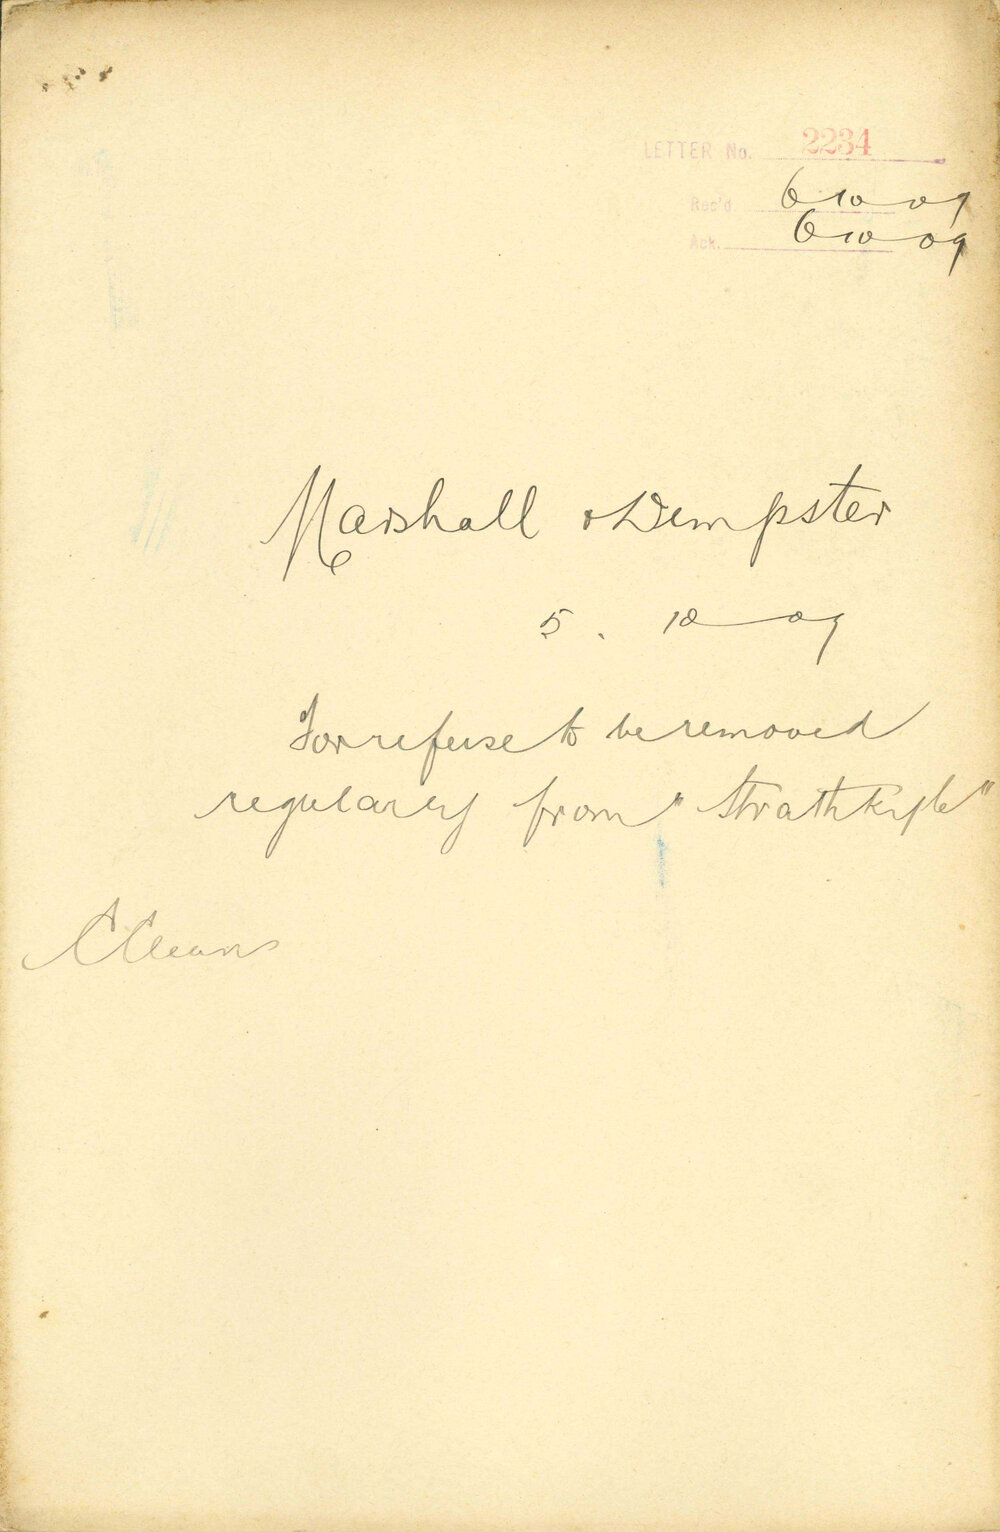 LETTER No. 2234
Rec'd 6 10 09
Ack. 6 10 09
Marshall & Dempster
5. 10 09
For refuse to be removed
regularly from "Strathkyle"